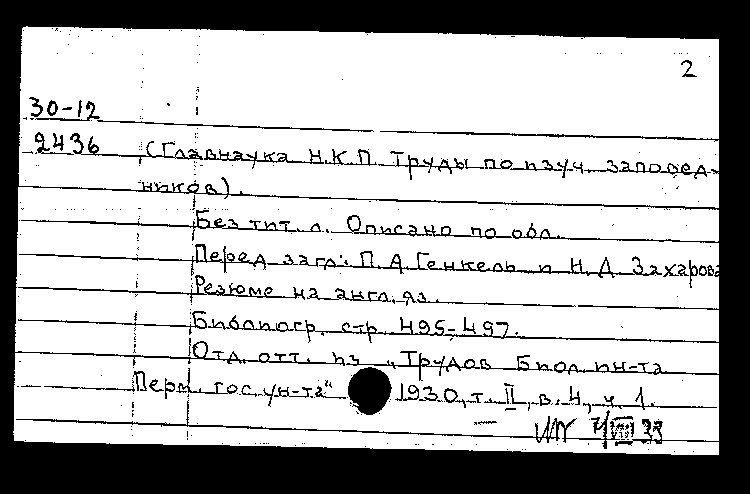 2
30-12
2436 (Главнаука Н.К.П. Труды по изуч. заповед-
ников).
Без тит. л. Описано по обл.
Перед загл.: П.А. Генкель и Н.Д. Захарова
Резюме на англ. яз.
Библиогр. стр. 495-497.
Отд. отт. из „Трудов Биол. ин-та
Перм. гос. ун-та" 1930, т. II, в. 4, ч. 1.
7/VIII 33